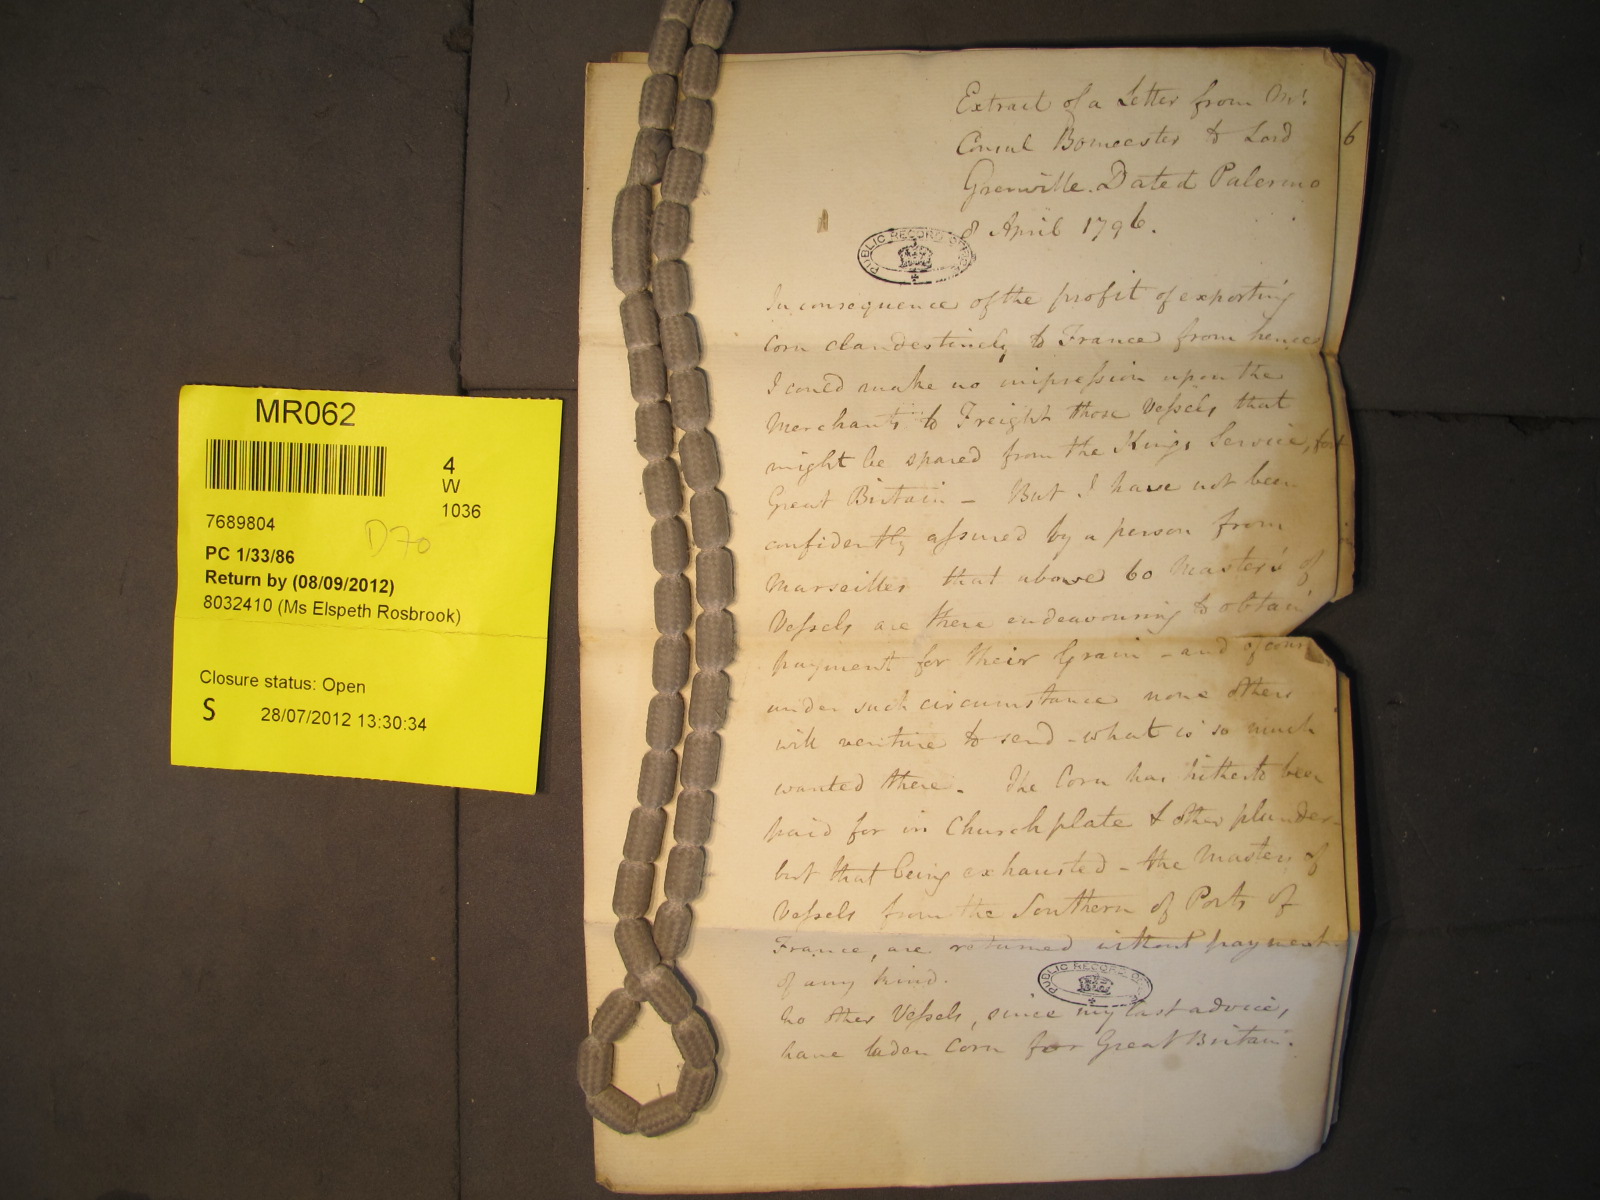 MR062
4
W
1036
7689804
D70
PC 1/33/86
Return by (08/09/2012)
8032410 (Ms Elspeth Rosbrook)
Closure status: Open
S 28/07/2012 13:30:34
Extract of a Letter from Mr.
Consul to Lord
Grenville. Dated Palermo
8 April 1796.
6
PUBLIC RECORD OFFICE
In consequence of the profit of exporting
Corn clandestinely to France from hence
I could make no impression upon the
Merchants to Freight those Vessels that
might be spared from the Kings Service, for
Great Britain – But I have not been
confidently assured by a person from
Marseilles that above 60 Masters of
Vessels are there endeavouring to obtain
payment for their Grain – and of
under such circumstance none others
will venture to send – what is so much
wanted there. The Corn has hitherto been
paid for in Church plate & other plunder –
but that being exhausted – the Masters of
Vessels from the Southern of Ports of
France, are returned without payment
of any kind.
PUBLIC RECORD OFFICE
No other Vessels, since my last advice,
have laden Corn for Great Britain.